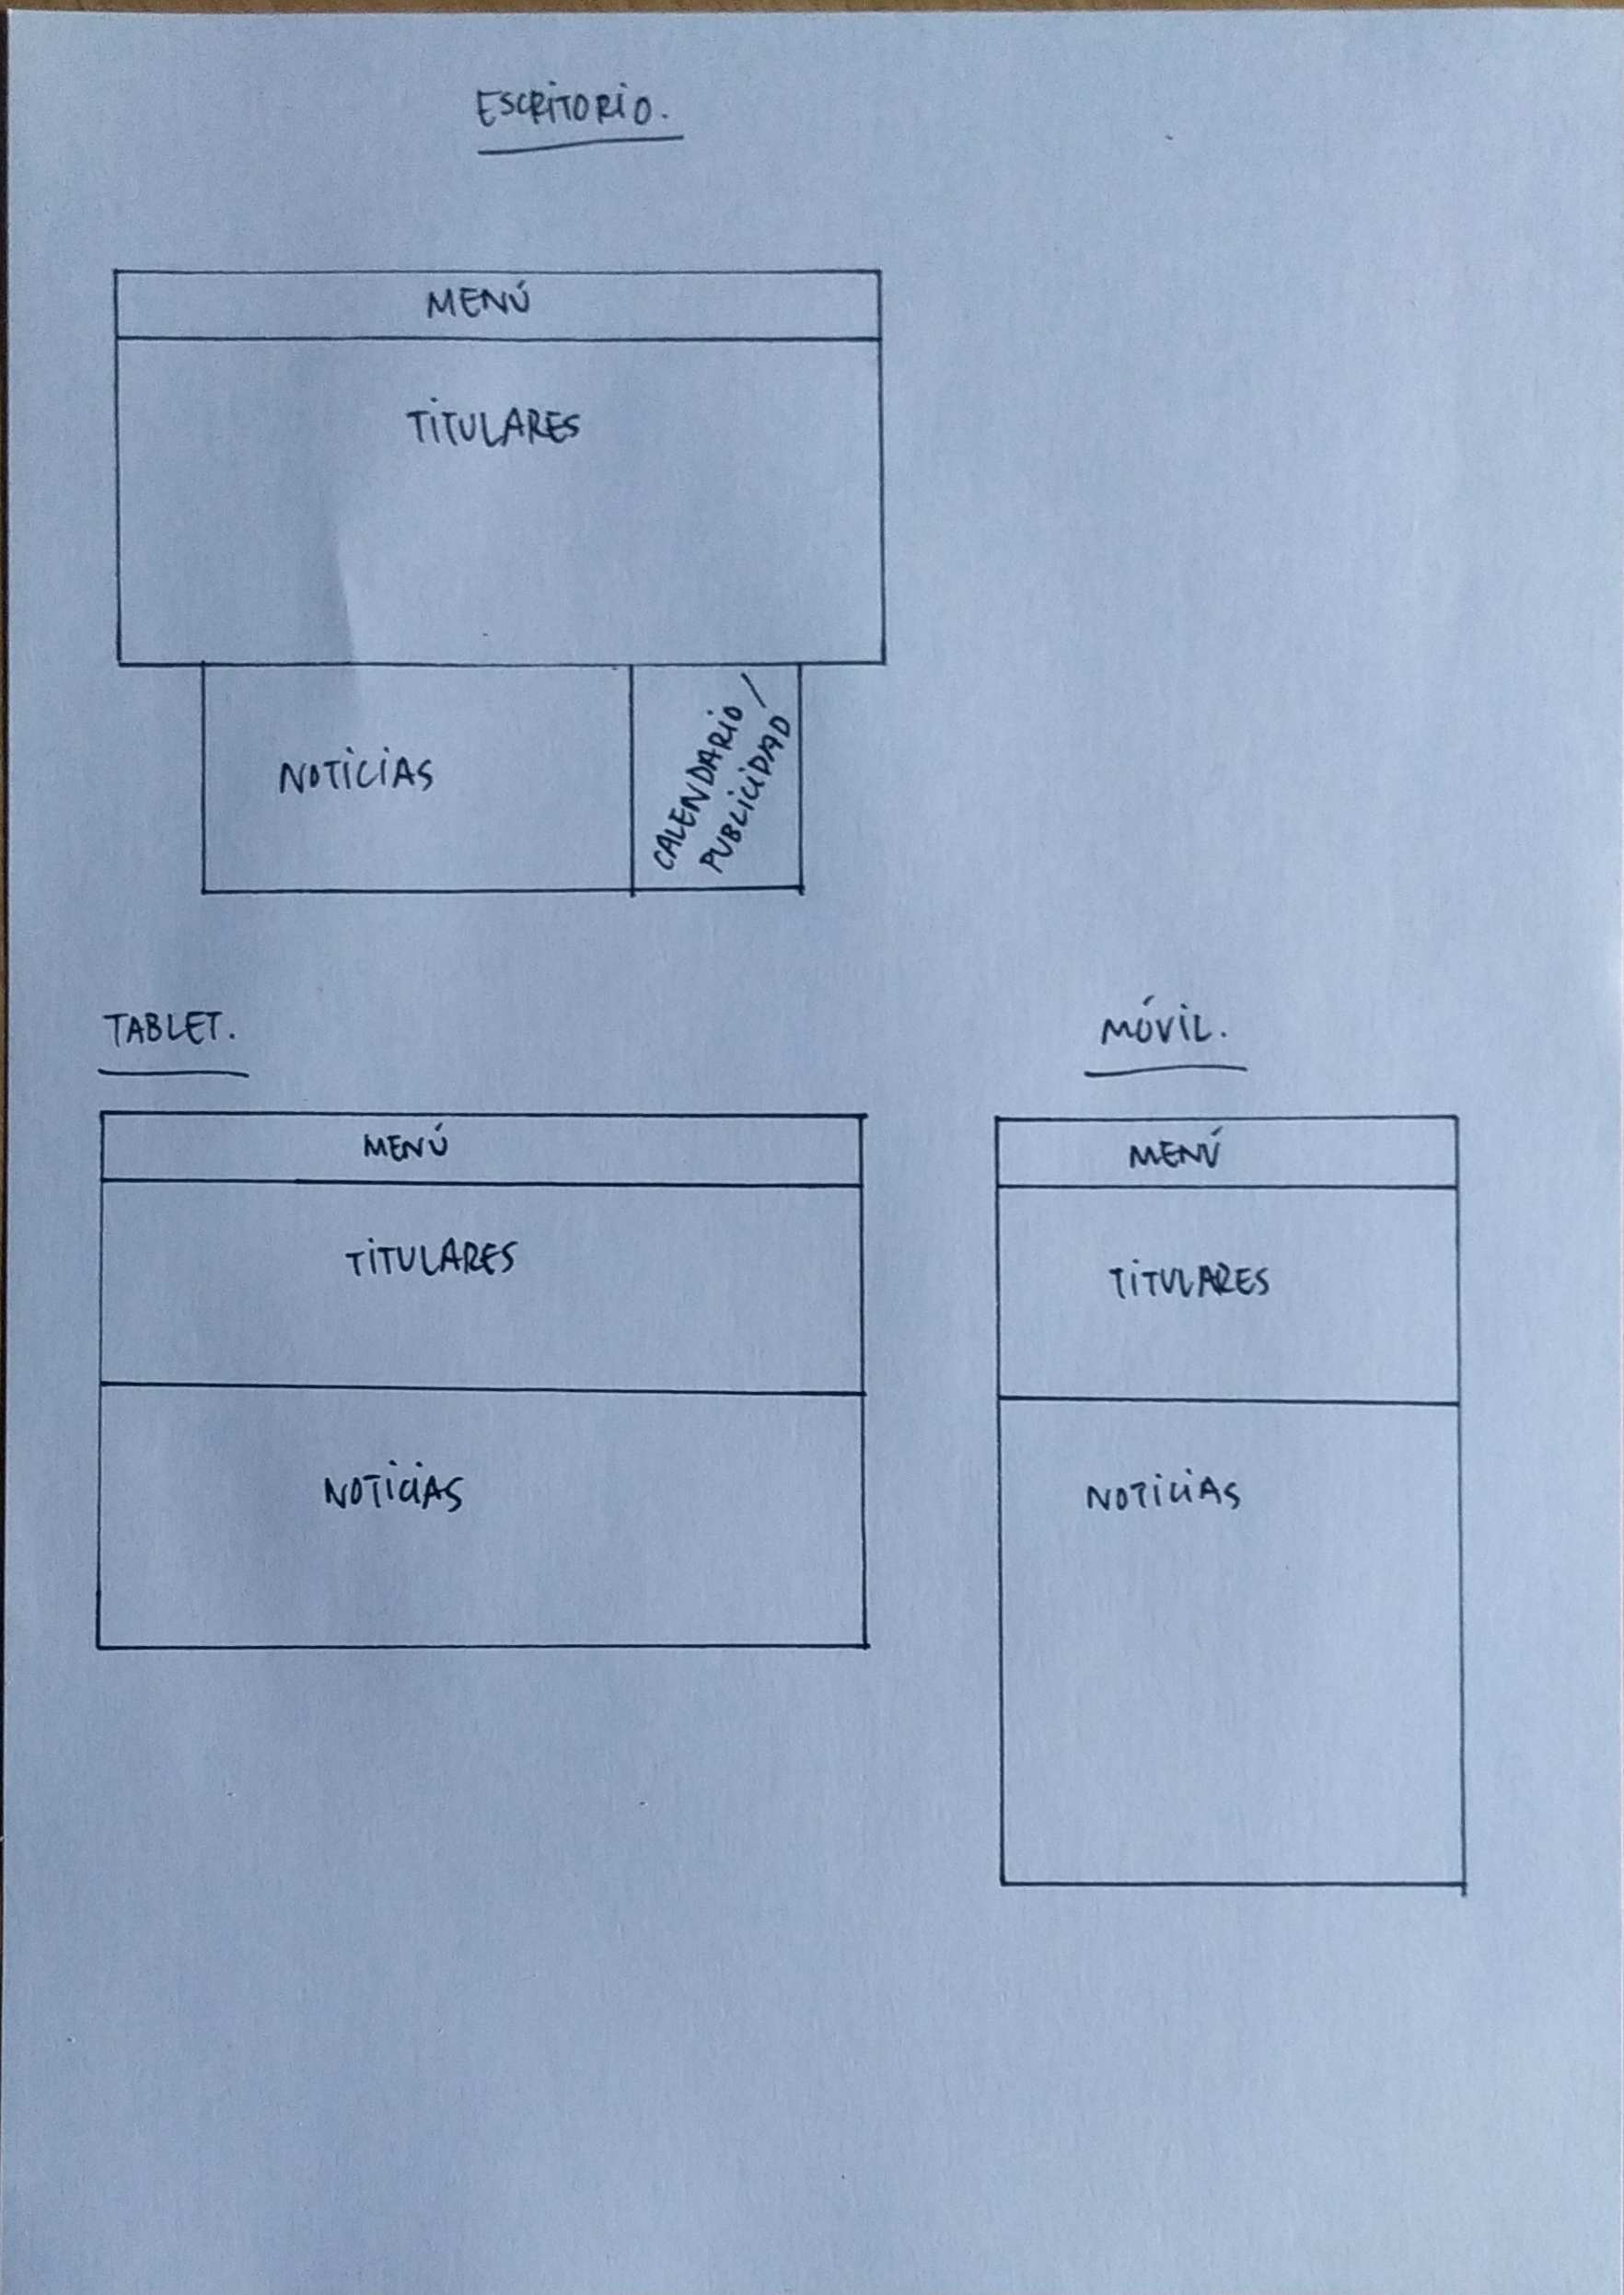 ESCRITORIO.
MENÚ
TITULARES
NOTICIAS
CALENDARIO /
PUBLICIDAD
TABLET.
MENÚ
TITULARES
NOTICIAS
MÓVIL.
MENÚ
TITULARES
NOTICIAS